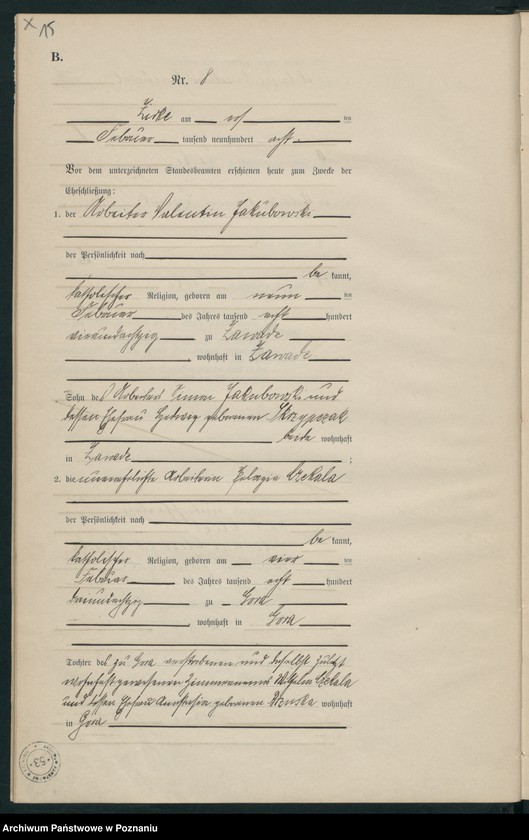 X 15
B.
Nr. 8
Zirke am ten
Februar tausend neunhundert acht.
Vor dem unterzeichneten Standesbeamten erschienen heute zum Zwecke der
Eheschließung:
1. der Arbeiter Valentin Jakubowski
der Persönlichkeit nach
be kannt,
katholischer Religion, geboren am neun ten
Februar des Jahres tausend acht hundert
vierundachtzig zu Zawade
, wohnhaft in Zawade
Sohn des Arbeiters Jakubowski und
dessen Ehefrau Hedwig geborenen Skrzypczak
beide wohnhaft
in Zawade ;
2. die unverehelichte Arbeiterin Pelagia Czekala
der Persönlichkeit nach
be kannt,
katholischer Religion, geboren am vier ten
Februar des Jahres tausend acht hundert
dreiundachtzig zu Gora
, wohnhaft in Gora
Tochter des zu Gora verstorbenen und daselbst zuletzt
wohnhaft gewesenen Zimmermanns Czekala
und dessen Ehefrau Anastasia geborenen wohnhaft
in Gora
53
Archiwum Państwowe w Poznaniu